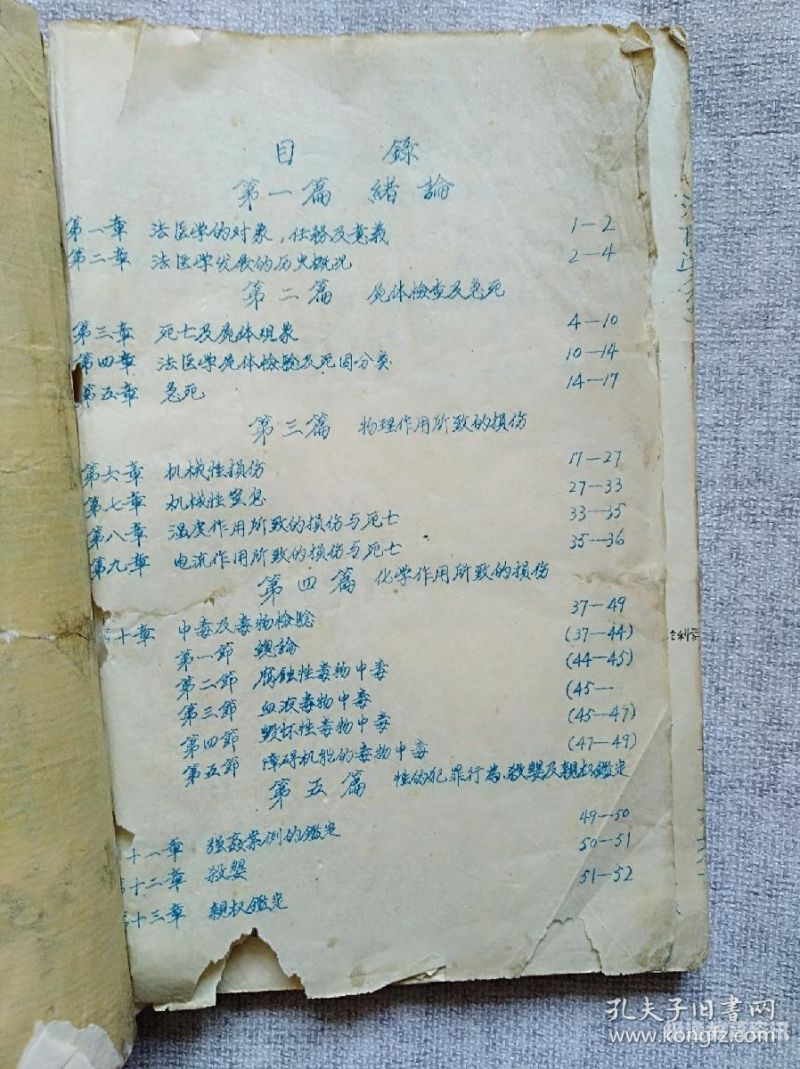 目 錄
第一篇 緒論
第一章 法医学的对象,任務及意義 1—2
第二章 法医学发展的历史概况 2—4
第二篇 屍体檢查及急死
第三章 死亡及屍体现象 4—10
第四章 法医学屍体檢驗及死因分类 10—14
第五章 急死 14—17
第三篇 物理作用所致的損伤
第六章 机械性損伤 17—27
第七章 机械性窒息 27—33
第八章 温度作用所致的損伤与死亡 33—35
第九章 电流作用所致的損伤与死亡 35—36
第四篇 化学作用所致的損伤
十章 中毒及毒物檢驗 37—49
第一節 總論 (37—44)
第二節 腐蝕性毒物中毒 (44—45)
第三節 血液毒物中毒 (45—
第四節 毀坏性毒物中毒 (45—47)
第五節 障碍机能的毒物中毒 (47—49)
第五篇 性的犯罪行為,殺嬰及親权鑑定
十一章 强姦案例的鑑定 49—50
十二章 殺嬰 50—51
十三章 親权鑑定 51—52
孔夫子旧書网
www.kongfz.com